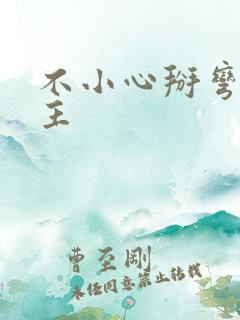 不小心掰弯
主
曹至刚
未经同意禁止转载